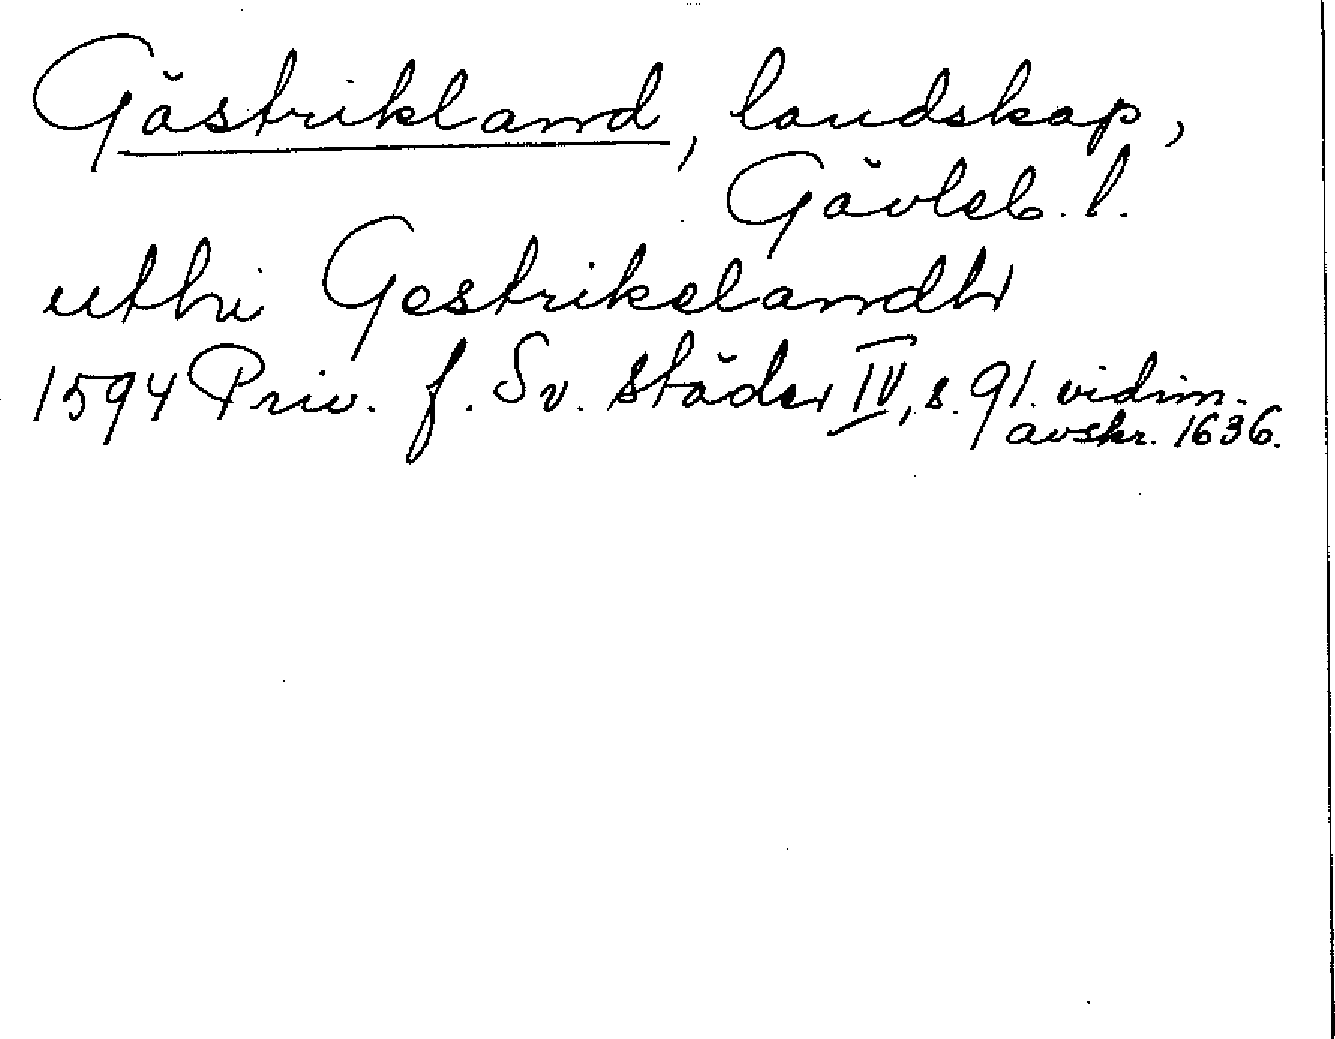 Gästrikland, landskap,
Gävleb. l.
uthi Gestrikelandh
1594 Priv. f. Sv. städer IV, s. 91. vidim.
avskr. 1636.